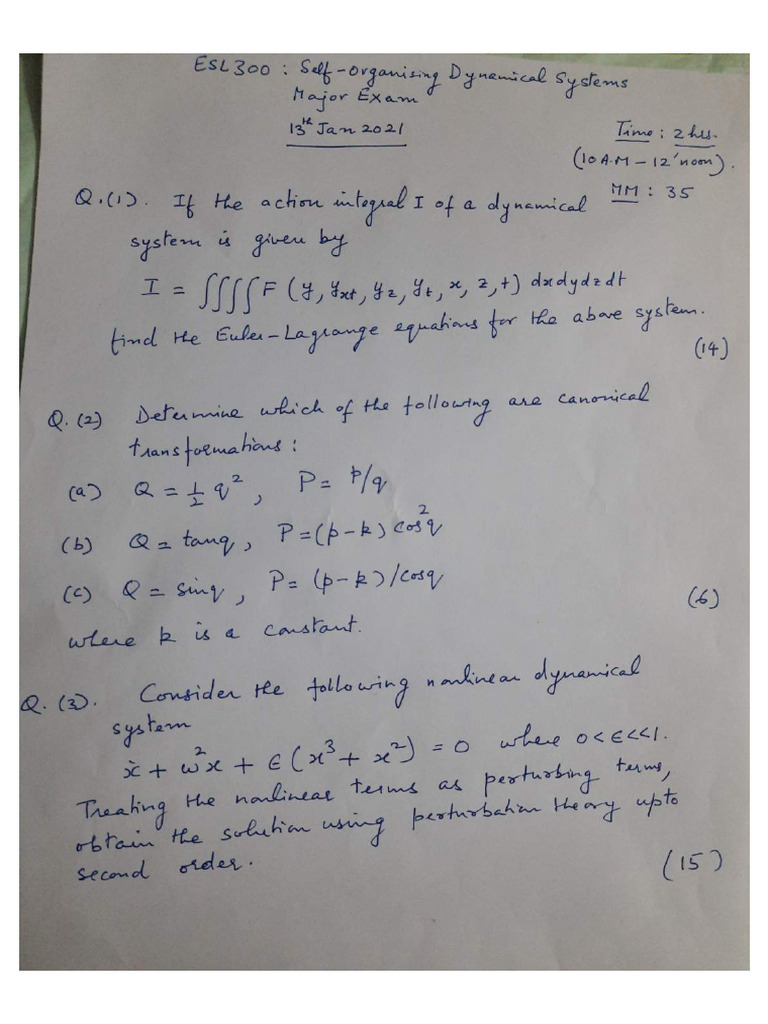 ESL300 : Self-Organising Dynamical Systems
Major Exam
13th Jan 2021
Time : 2 hrs.
(10 A.M – 12 noon).
MM : 35
Q.(1). If the action integral I of a dynamical
system is given by
I = ∫∫∫∫ F (y, y_xt, y_z, y_t, x, z, t) dxdydzdt
find the Euler-Lagrange equations for the above system.
(14)
Q.(2) Determine which of the following are canonical
transformations :
(a) Q = ½ q², P = p/q
(b) Q = tanq, P = (p-k) cos²q
(c) Q = sinq, P = (p-k)/cosq
where k is a constant.
(6)
Q.(3). Consider the following nonlinear dynamical
system
ẍ + ω²x + ε(x³ + x²) = 0 where 0<ε<<1.
Treating the nonlinear terms as perturbing terms,
obtain the solution using perturbation theory upto
second order.
(15)